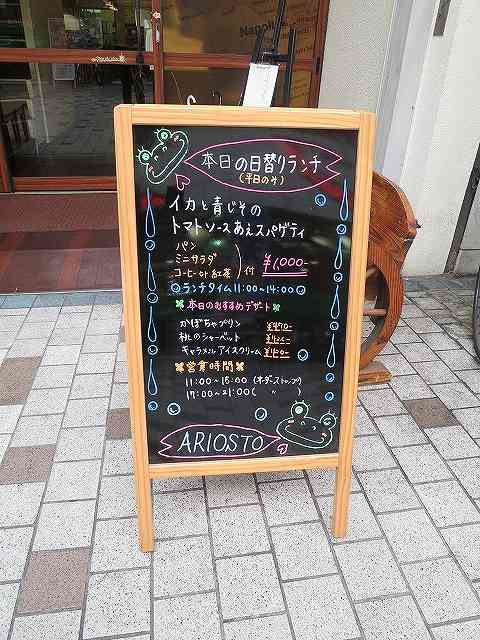 本日の日替りランチ
(平日のみ)
イカと青じその
トマトソースあえスパゲティ
パン
ミニサラダ
コーヒーor紅茶
付
¥1,000-
ランチタイム11:00~14:00
本日のおすすめデザート
かぼちゃプリン
桃のシャーベット
キャラメルアイスクリーム ¥400-
営業時間
11:00~15:00 (オーダーストップ)
17:00~21:00 ( 〃 )
ARIOSTO